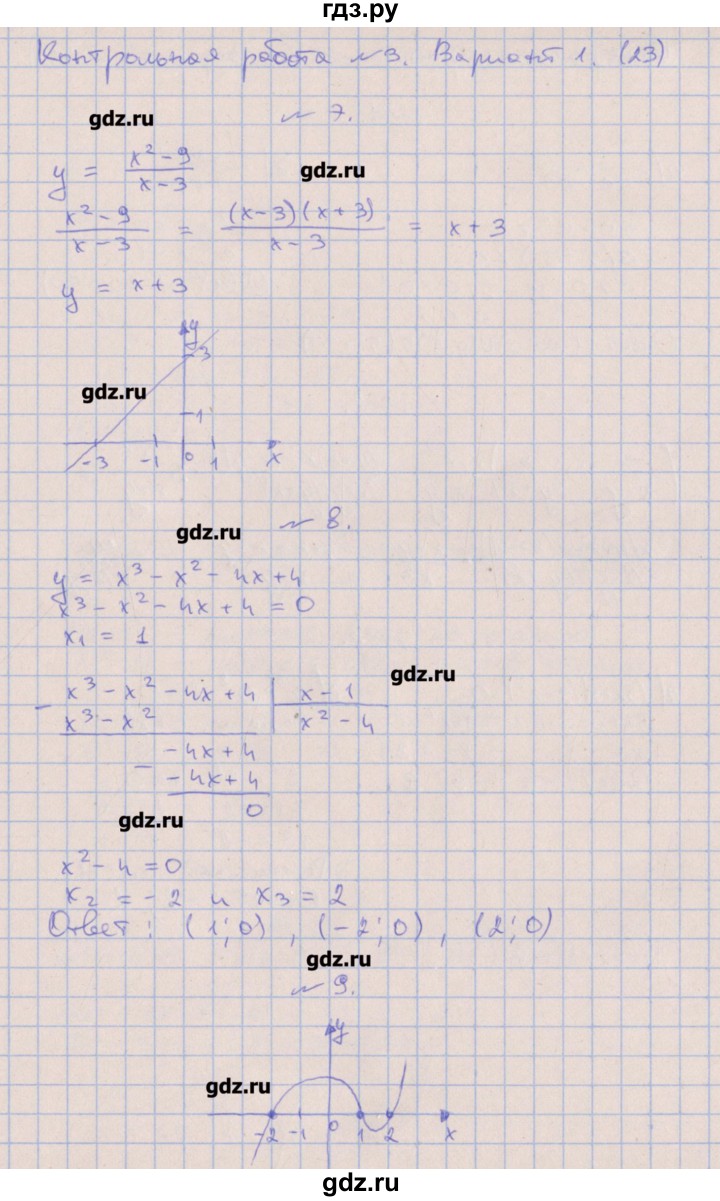 гдз.ру
Контрольная работа №3. Вариант 1. (23)
gdz.ru
№ 7.
y = x² - 9 / x - 3
gdz.ru
x² - 9 / x - 3 = (x-3)(x+3) / x - 3 = x + 3
y = x + 3
y
3
gdz.ru
1
-3 -1 0 1 x
gdz.ru
№ 8.
y = x³ - x² - 4x + 4
x³ - x² - 4x + 4 = 0
x₁ = 1
gdz.ru
- x³ - x² - 4x + 4 | x - 1
x³ - x² | x² - 4
- - 4x + 4
- 4x + 4
0
gdz.ru
x² - 4 = 0
x₂ = - 2 и x₃ = 2
Ответ: (1; 0), (-2; 0), (2; 0)
gdz.ru
№ 9.
y
gdz.ru
-2 -1 0 1 2 x
gdz.ru